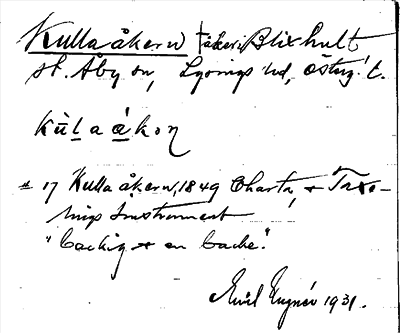 Kullaåkern, åker i Blixhult
st. Åby sn, Lysings hd, Östg. l.
kùlaákən
17 Kullaåkern, 1849 Charta, + Taxe-
rings Instrument
"backig + en backe."
Emil 1931.